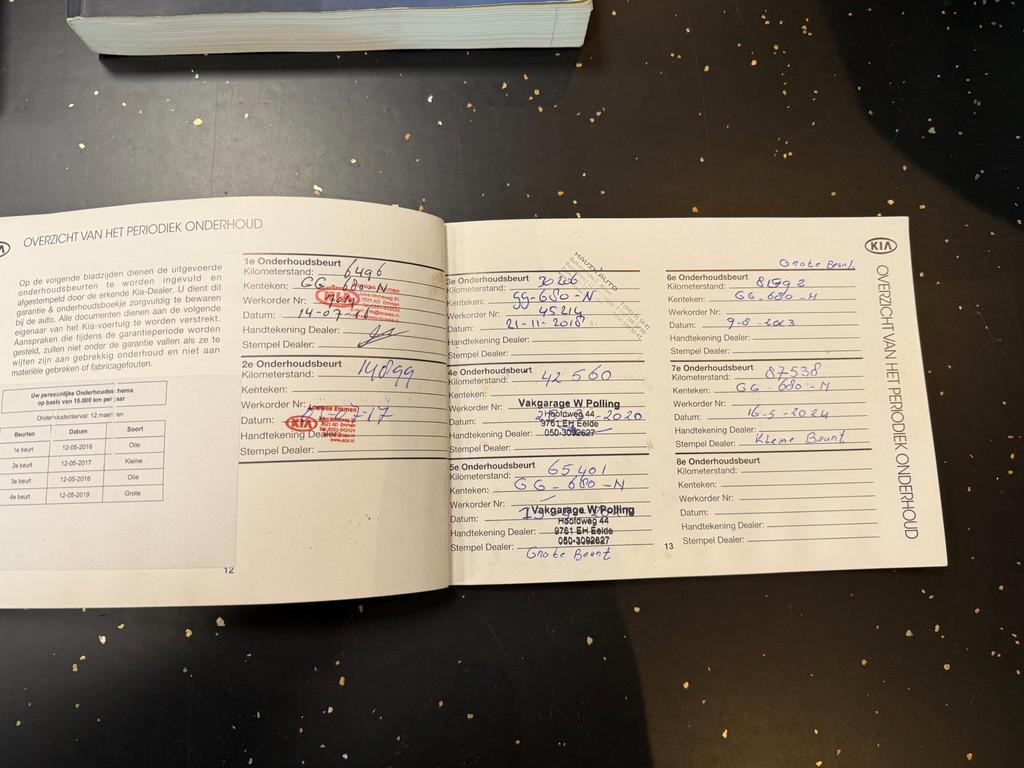 OVERZICHT VAN HET PERIODIEK ONDERHOUD
Op de volgende bladzijden dienen de uitgevoerde
onderhoudsbeurten te worden ingevuld en
afgestempeld door de erkende Kia-Dealer. U dient dit
garantie & onderhoudsboekje zorgvuldig te bewaren
bij de auto. Alle documenten dienen aan de volgende
eigenaar van het Kia-voertuig te worden verstrekt.
Aanspraken die tijdens de garantieperiode worden
gesteld, zullen niet onder de garantie vallen als ze te
wijten zijn aan gebrekkig onderhoud en niet aan
materiële gebreken of fabricagefouten.
Uw persoonlijke Onderhoudsschema
op basis van 15.000 km per jaar
Onderhoudsinterval: 12 maanden
Beurten Datum Soort
1e beurt 12-05-2016 Olie
2e beurt 12-05-2017 Kleine
3e beurt 12-05-2018 Olie
4e beurt 12-05-2019 Grote
12
1e Onderhoudsbeurt
Kilometerstand: 6496
Kenteken: GG 680-N
Werkorder Nr:
Datum: 14-07-16
Handtekening Dealer:
Stempel Dealer:
KIA
2e Onderhoudsbeurt
Kilometerstand: 14899
Kenteken:
Werkorder Nr:
Datum: 17
Handtekening Dealer:
Stempel Dealer:
KIA
Emmen
3e Onderhoudsbeurt
Kilometerstand: 30206
Kenteken: GG-680-N
Werkorder Nr: 45214
Datum: 21-11-2018
Handtekening Dealer:
Stempel Dealer:
4e Onderhoudsbeurt
Kilometerstand: 42560
Kenteken:
Werkorder Nr:
Datum: 2020
Handtekening Dealer:
Stempel Dealer:
Vakgarage W Polling
Hoofdweg 44
9761 EH Eelde
050-3092627
5e Onderhoudsbeurt
Kilometerstand: 65401
Kenteken: GG-680-N
Werkorder Nr:
Datum:
Handtekening Dealer:
Stempel Dealer:
Vakgarage W Polling
Hoofdweg 44
9761 EH Eelde
050-3092627
Grote Beurt
KIA
Grote Beurt
6e Onderhoudsbeurt
Kilometerstand: 81992
Kenteken: GG-680-N
Werkorder Nr:
Datum: 9-8-2023
Handtekening Dealer:
Stempel Dealer:
7e Onderhoudsbeurt
Kilometerstand: 87538
Kenteken: GG-680-N
Werkorder Nr:
Datum: 16-5-2024
Handtekening Dealer:
Stempel Dealer: Kleine Beurt
8e Onderhoudsbeurt
Kilometerstand:
Kenteken:
Werkorder Nr:
Datum:
Handtekening Dealer:
Stempel Dealer:
13
OVERZICHT VAN HET PERIODIEK ONDERHOUD